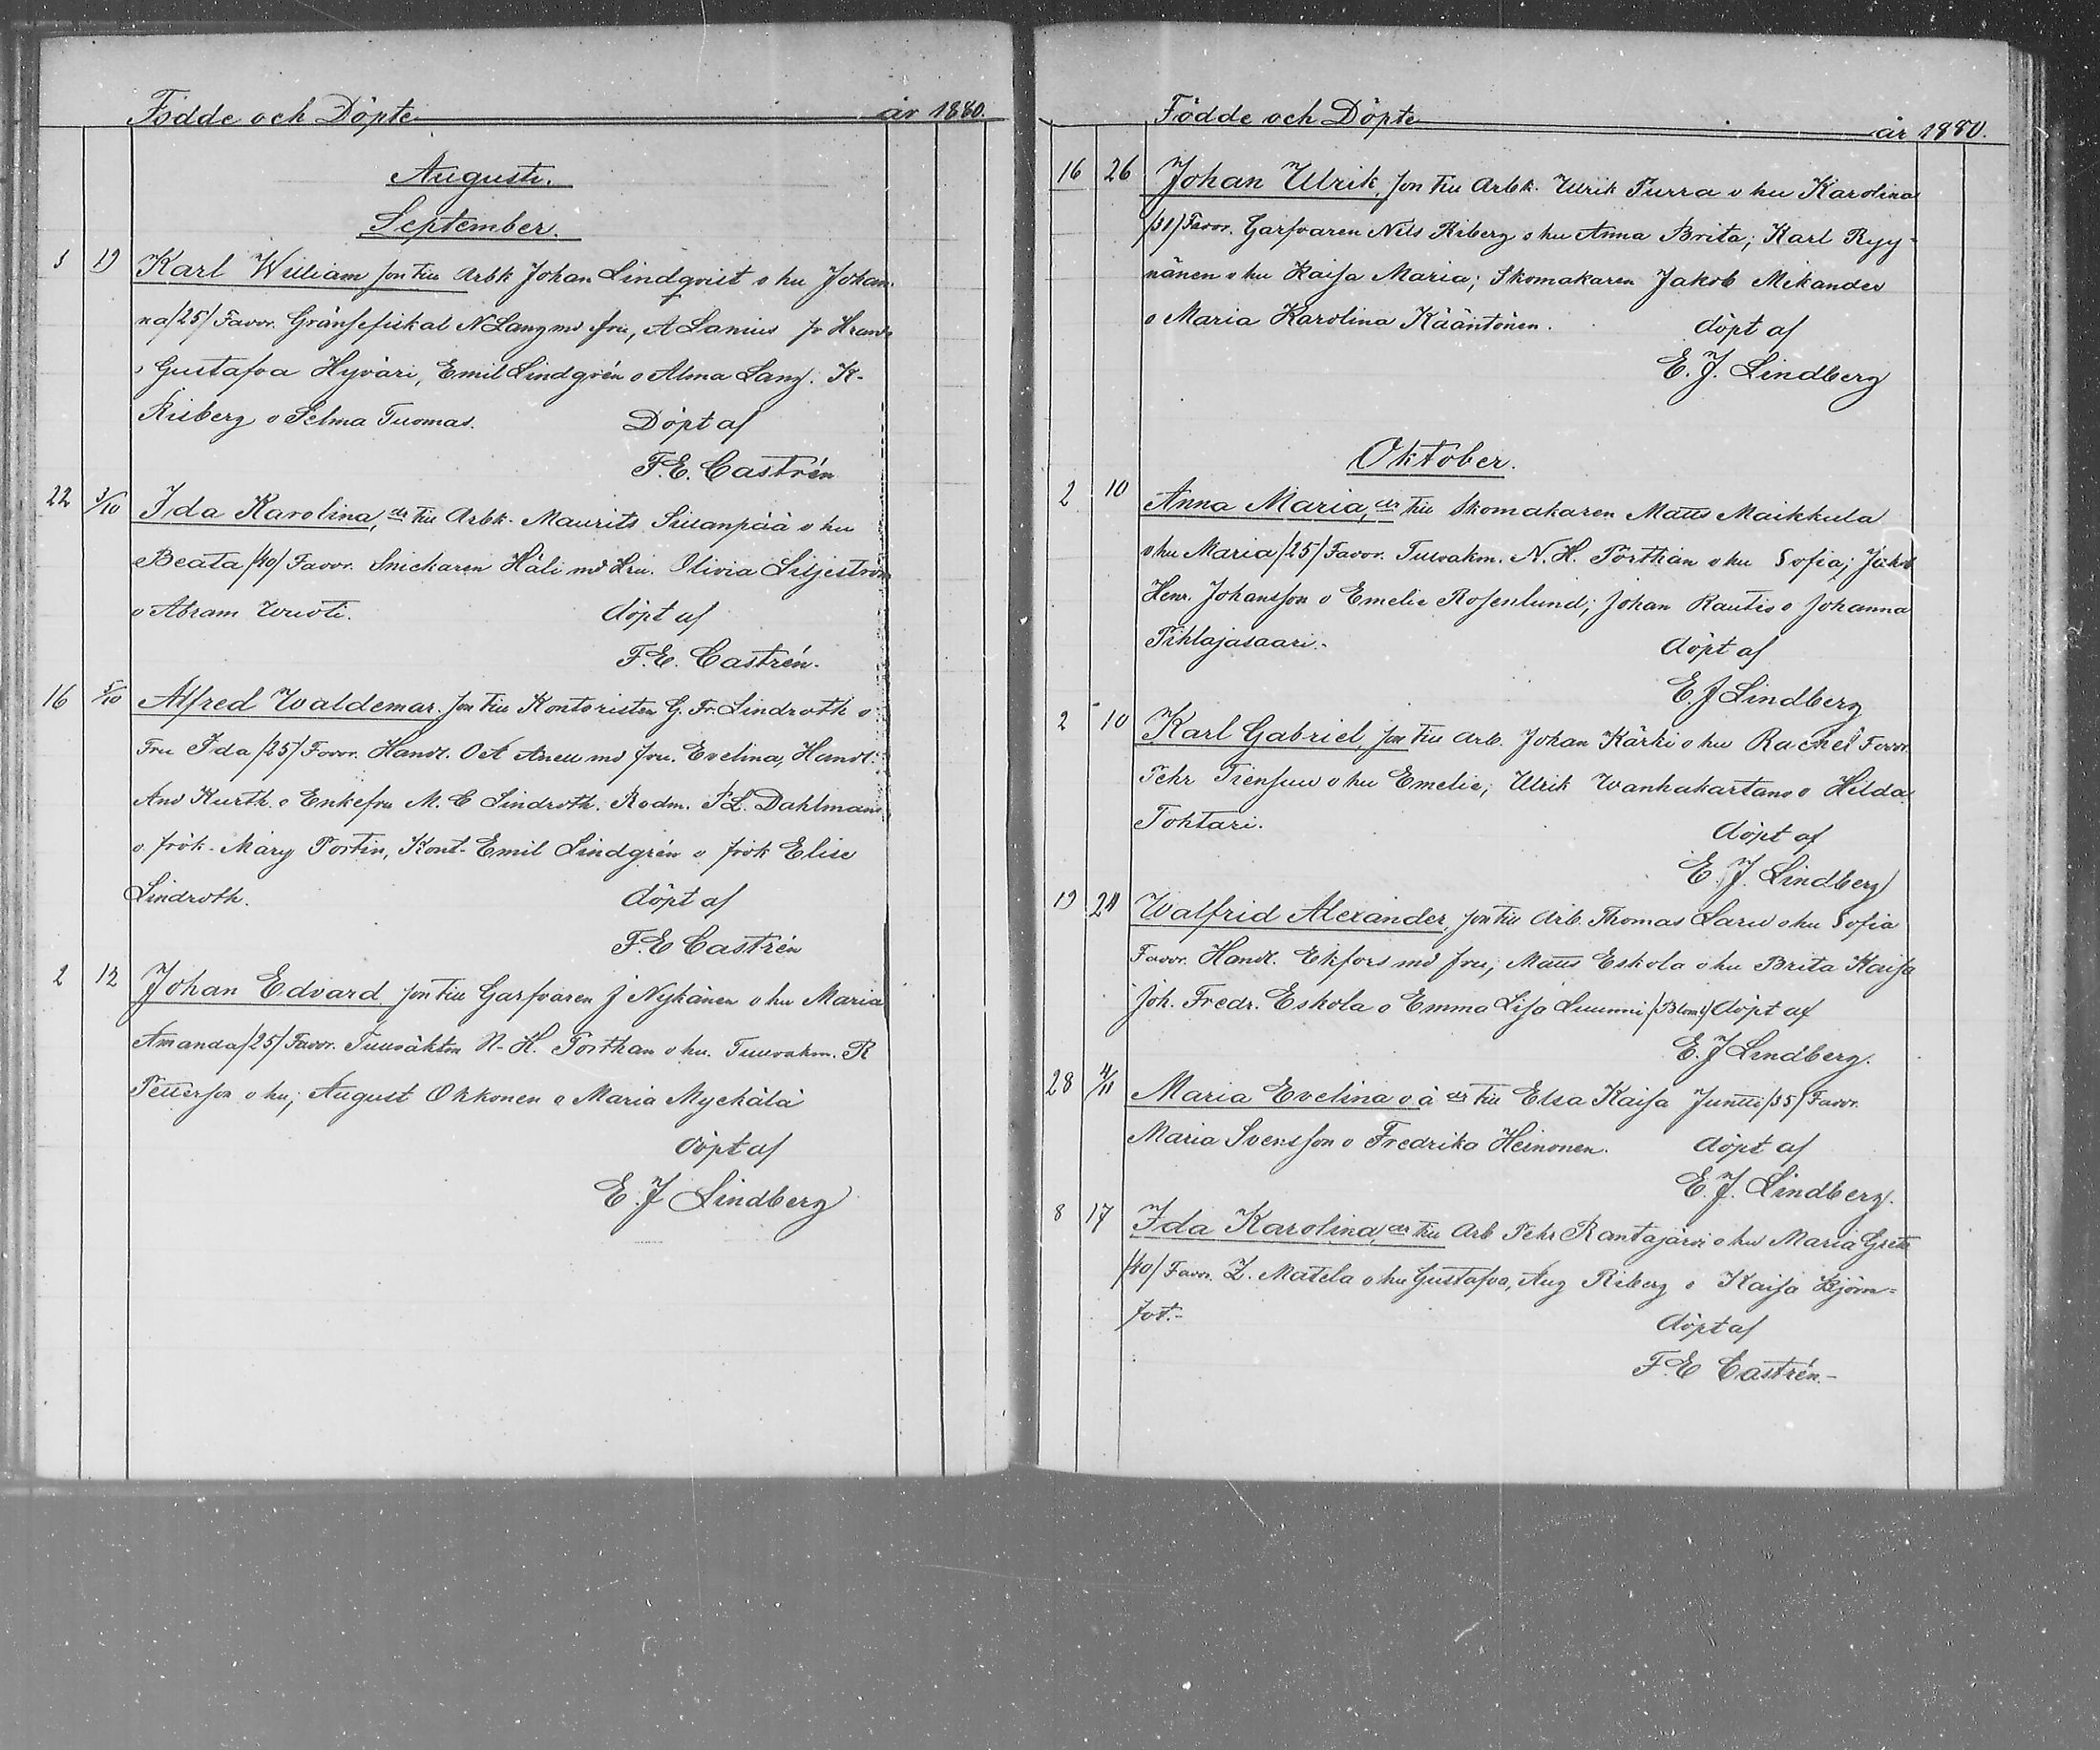 Födde och Döpte år 1880.
Augusti.
September.
3 19 Karl William, son till Arbk Johan Lindqvist o hu Johan-
na /25/ Favor. Gränsefiskal N Lang md fru, A Lanius fr
o Gustafva Hyväri, Emil Lindgrén o Alma Lang. K-
Riberg o Selma Tuomas. Döpt af
F.E. Castrén
22 3/10 Ida Karolina, dr till Arbk. Maurits Sillanpää o hu
Beata /40/ Favor. Snickaren Häli md hu. Olivia Liljeström
o Abram döpt af
F.E. Castrén.
16 5/10 Alfred Waldemar. son till Kontoristen G. Fr. Lindroth o
Fru Ida /25/ Favor. Handl. O A md fru. Evelina, Handl.
And Kurth. o Enkefru M. C Lindroth. Rodm. P L. Dahlman
o frök. Mary Portin, Kont- Emil Lindgrén o frök Elise
Lindroth. döpt af
F.E Castrén
2 12 Johan Edvard. son till Garfvaren J Nykänen o hu Maria
Amanda /25/ Favor. Tullväktm N. H. Porthan o hu. Tullvakm. R
Petterson o hu; August Okkonen o Maria Myckälä
döpt af
E. J Lindberg
Födde och Döpte år 1880.
16 26 Johan Ulrik, son till Arbk. Ulrik Turra o hu Karolina
/31/ Favor. Garfvaren Nils Riberg o hu Anna Brita; Karl Ryy-
nänen o hu Kaisa Maria; Skomakaren Jakob Mikander
o Maria Karolina Kääntönen. döpt af
E. J. Lindberg
Oktober.
2 10 Anna Maria, dr till Skomakaren Matts Maikkula
o hu Maria /25/ Favor. Tullvakm. N. H. Porthan o hu Sofia; Jakob
Henr. Johansson o Emelie Rosenlund; Johan Rautio o Johanna
Pihlajasaari. döpt af
E. J Lindberg
2 10 Karl Gabriel, son till Arb. Johan Kärki o hu Rachel Favor.
Pehr Tiensuu o hu Emelie; Ulrik Wanhakartano o Hilda
Tohtari. döpt af
E. J. Lindberg
19 24 Walfrid Alexander, son till Arb. Thomas Laru o hu Sofia
Favor. Handl. Ekfors md fru; Matts Eskola o hu Brita Kaisa
Joh. Fredr. Eskola o Emma Lisa Luunni /Blom?/ döpt af
E. J Lindberg.
28 4/11 Maria Evelina o ä dr till Elsa Kaisa Juntti /35/ Favor.
Maria Svensson o Fredrika Heinonen. döpt af
E. J. Lindberg.
8 17 Ida Karolina, dr till Arb Pehr Rantajärvi o hu Maria Greta
/40/ Favor. Z. Matela o hu Gustafva, Aug Riberg o Kaisa Björn-
fot.- döpt af
F.E Castrén.-